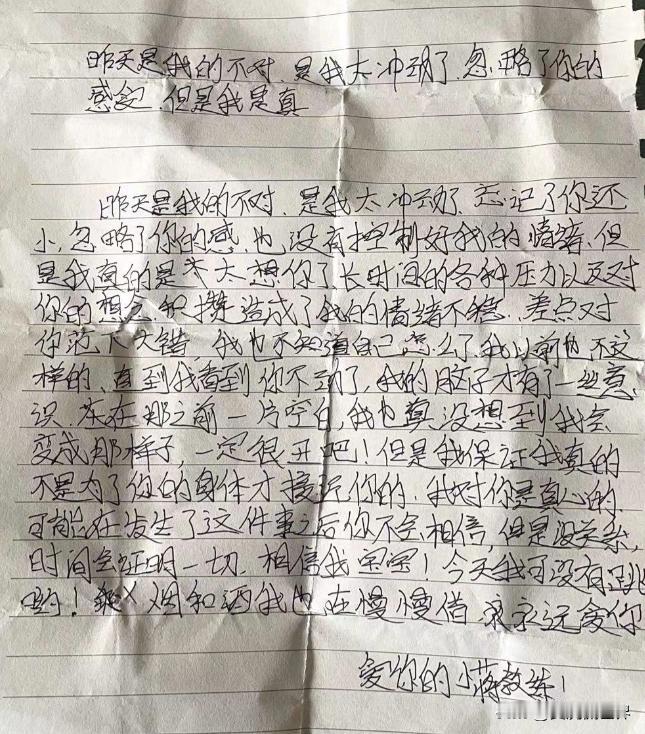 昨天是我的不对.是我太冲动了.忽略了你的
感受 但是我是真
昨天是我的不对.是我太冲动了.忘记了你还
小,忽略了你的感,也没有控制好我的情绪,但
是我真的是太想你了,长时间的各种压力以及对
你的想念积攒造成了我的情绪不稳.差点对
你范下大错 我也不知道自己怎么了,我以前也不这
样的,直到我看到你不动了,我的脑子才有了一丝意
识.在那之前一片空白,我也真没想到我会
变成那样子,一定很丑吧!但是我保证我真的
不是为了你的身体才接近你的.我对你是真心的.
可能在发生了这件事之后你不会相信,但是没关系,
时间会证明一切.相信我宝宝!今天我可没有
哟! 烟和酒我也在慢慢借 永远爱你
爱你的小蒋教练!